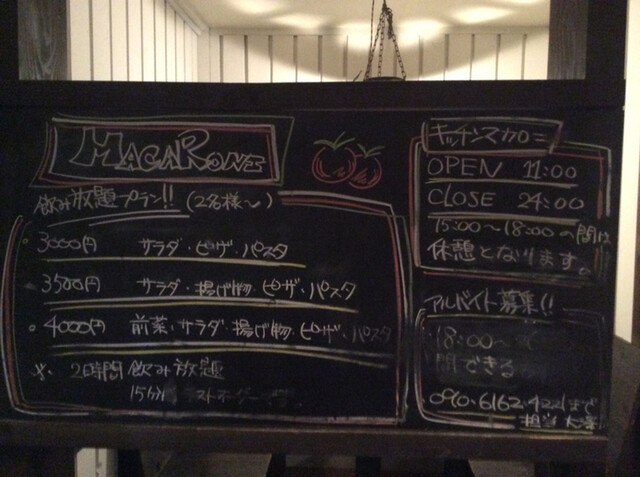 MACARONI
飲み放題プラン!! (2名様〜)
3000円 サラダ・ピザ・パスタ
3500円 サラダ・揚げ物・ピザ・パスタ
4000円 前菜・サラダ・揚げ物・ピザ・パスタ
※ 2時間飲み放題
15分
キッチンマカロニ
OPEN 11:00
CLOSE 24:00
15:00〜18:00の間は
休憩となります。
アルバイト募集!!
18:00〜
できる
090-6162-4221まで
担当